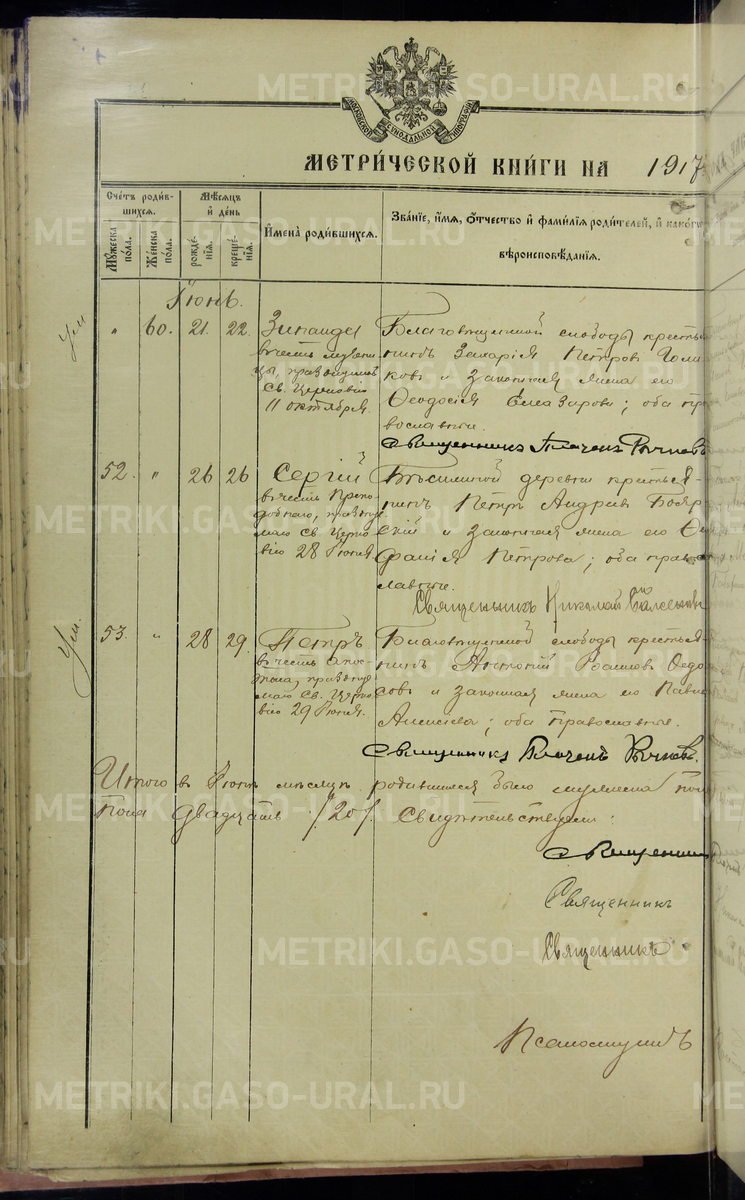 METRIKI.GASO-URAL.RU
МОСКОВСКОЙ СУНОДАЛЬНОЙ ТИПОГРАФІИ
МЕТРИ́ЧЕСКОЙ КНИ́ГИ НА 1917
Сче́тъ роди́в-
шихсѧ.
Мꙋ́жеска
по́ла.
Же́нска
по́ла.
Мѣ́сѧцъ
и҆ де́нь
рожде́-
нїѧ.
креще́-
нїѧ.
И҆мена̀ роди́вшихсѧ.
Зва́нїе, и҆́мѧ, ѻ҆́тчество и҆ фами́лїѧ роди́телей, и҆ како́гѡ
вѣроисповѣ́данїѧ.
Іюнь.
Ум
" 60. 21. 22. Зинаида
въ честь мучени-
цы, празднуемой
Св. Церковію
11 октября.
Благовѣщенской слободы кресть-
янинъ Захарія Петров Голи-
ковъ и законная жена его
Ѳеодосія Елеазарова; оба пра-
вославные.
Священникъ
52. " 26 26 Сергій
въ честь Препо-
добнаго, праздну-
емаго Св. Церко-
вію 28 Іюня.
деревни крестья-
нинъ Петръ Андреев Бояр-
скій и законная жена его
Петрова; оба право-
славные.
Священникъ Николай
Ум.
53. " 28 29. Петръ
въ честь Апос-
тола, праздну-
емаго Св. Церко-
вію 29 Іюня.
Благовѣщенской слободы крестья-
нинъ Ѳедо-
совъ и законная жена его
Алексіева; оба православные.
Священникъ
Итого въ Іюнѣ мѣсяцѣ родившихся было
пола двадцать /20/. Свидѣтельствуемъ:
Священник
Священникъ
Священникъ
Псаломщикъ